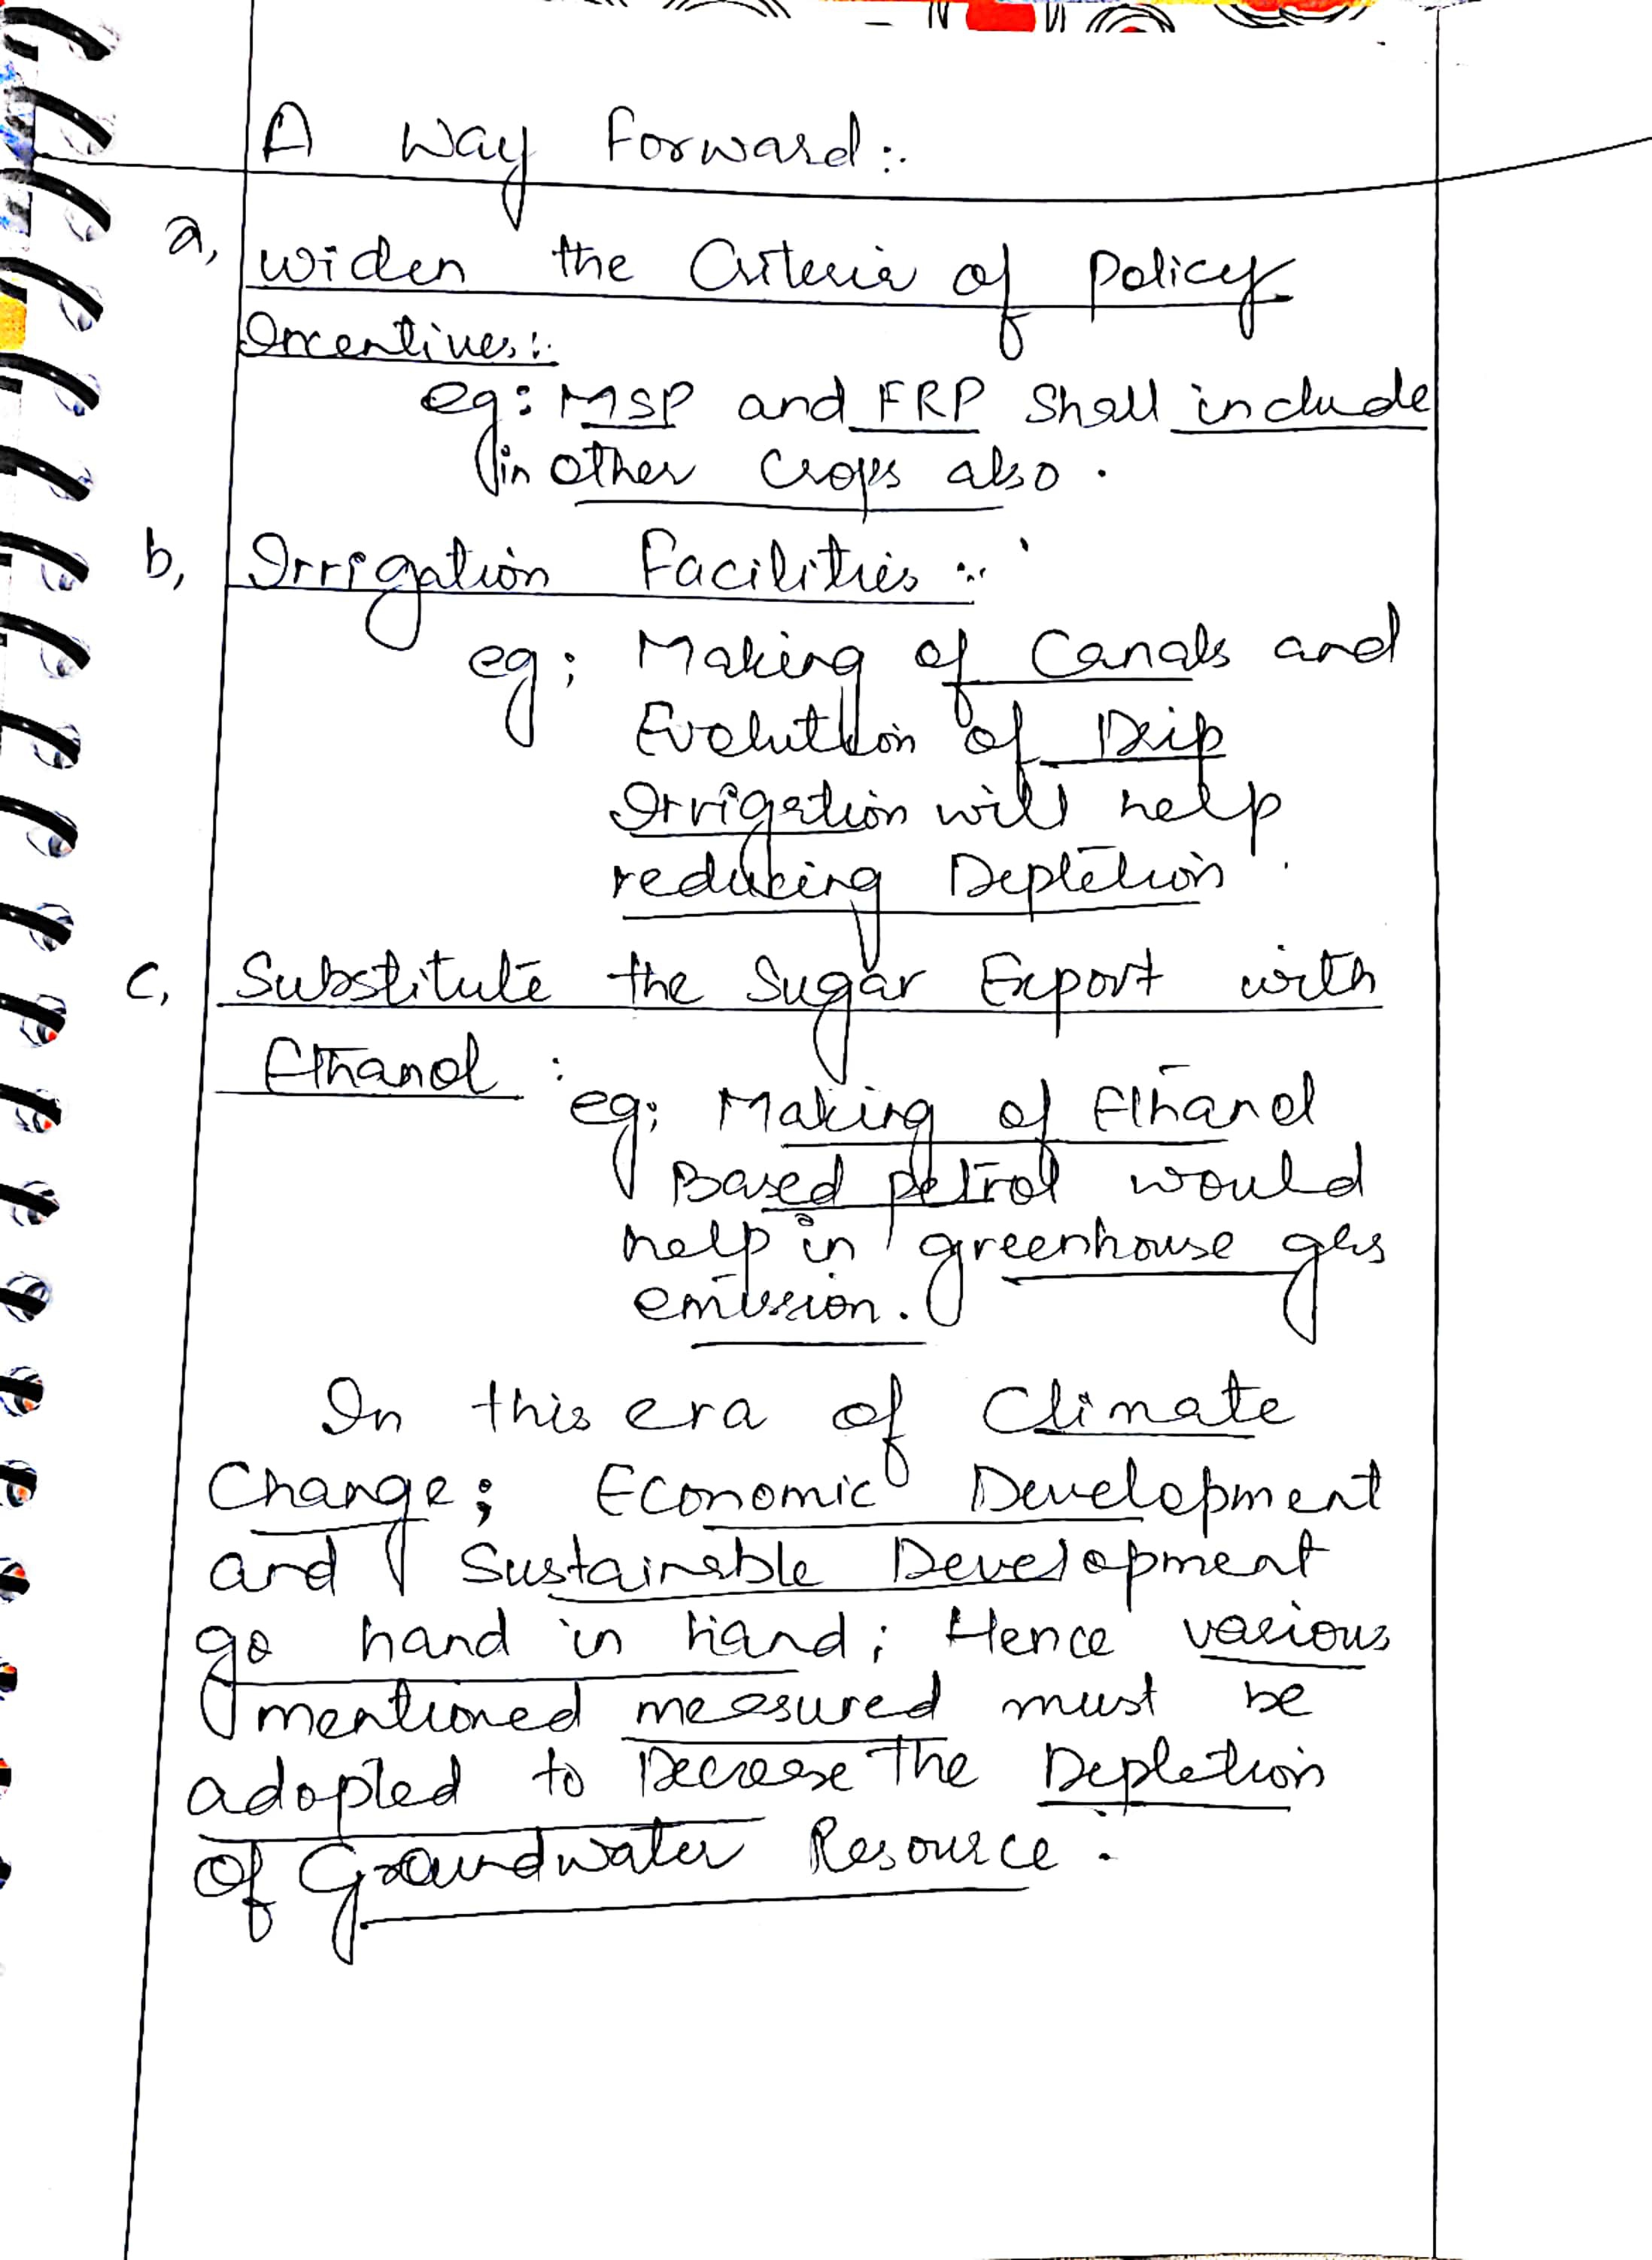 A Way Forward :.
a, widen the Criteria of policy
Incentives :.
eg: MSP and FRP shall include
in other crops also .
b, Irrigation Facilities :.
eg; Making of Canals and
Evolution of Drip
Irrigation will help
reducing Depletion .
c, Substitute the Sugar Export with
Ethanol :
eg; Making of Ethanol
Based petrol would
help in greenhouse gas
emission.
In this era of Climate
Change; Economic Development
and Sustainable Development
go hand in hand; Hence various
mentioned measured must be
adopted to Decrease the Depletion
of Groundwater Resource .